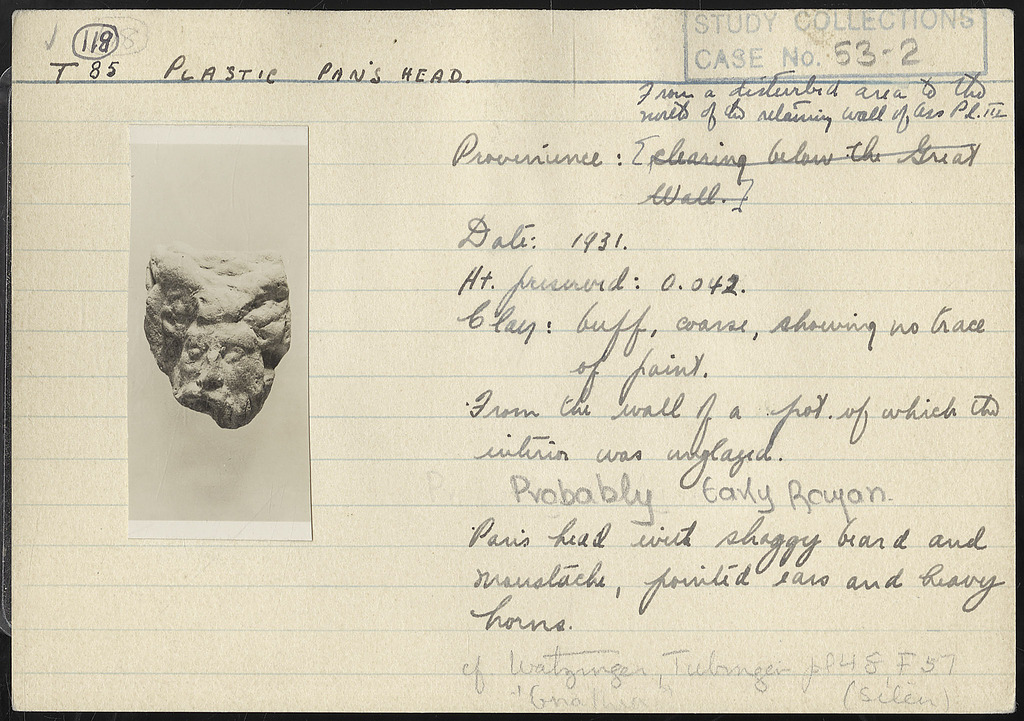 STUDY COLLECTIONS
CASE No. 53-2
118
T 85 PLASTIC PAN'S HEAD.
From a disturbed area to the
north of the retaining wall of Ass Pl. III
Provenience: [clearing below the Great
Wall.]
Date: 1931.
Ht. preserved: 0.042.
Clay: buff, coarse, showing no trace
of paint.
From the wall of a pot of which the
interior was unglazed.
Probably Early Roman.
Pan's head with shaggy beard and
moustache, pointed ears and heavy
horns.
cf. Watzinger, Tubingen pl 48, F 37
"Gnathia" (Silen)